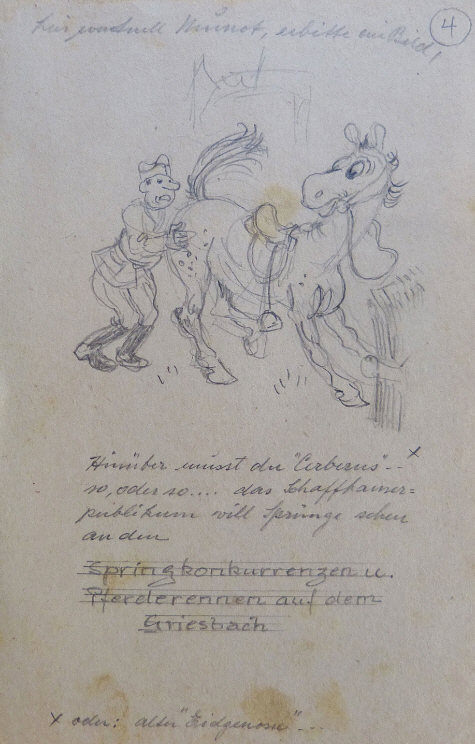 4
erbitte ein Bild!
Hinüber musst du "Cerberus"-- x
so, oder so.... das Schaffhauser=
publikum will Sprünge sehen
an den
Springkonkurrenzen u.
Pferderennen auf dem
Griesbach
x oder: alter "Eidgenosse"---